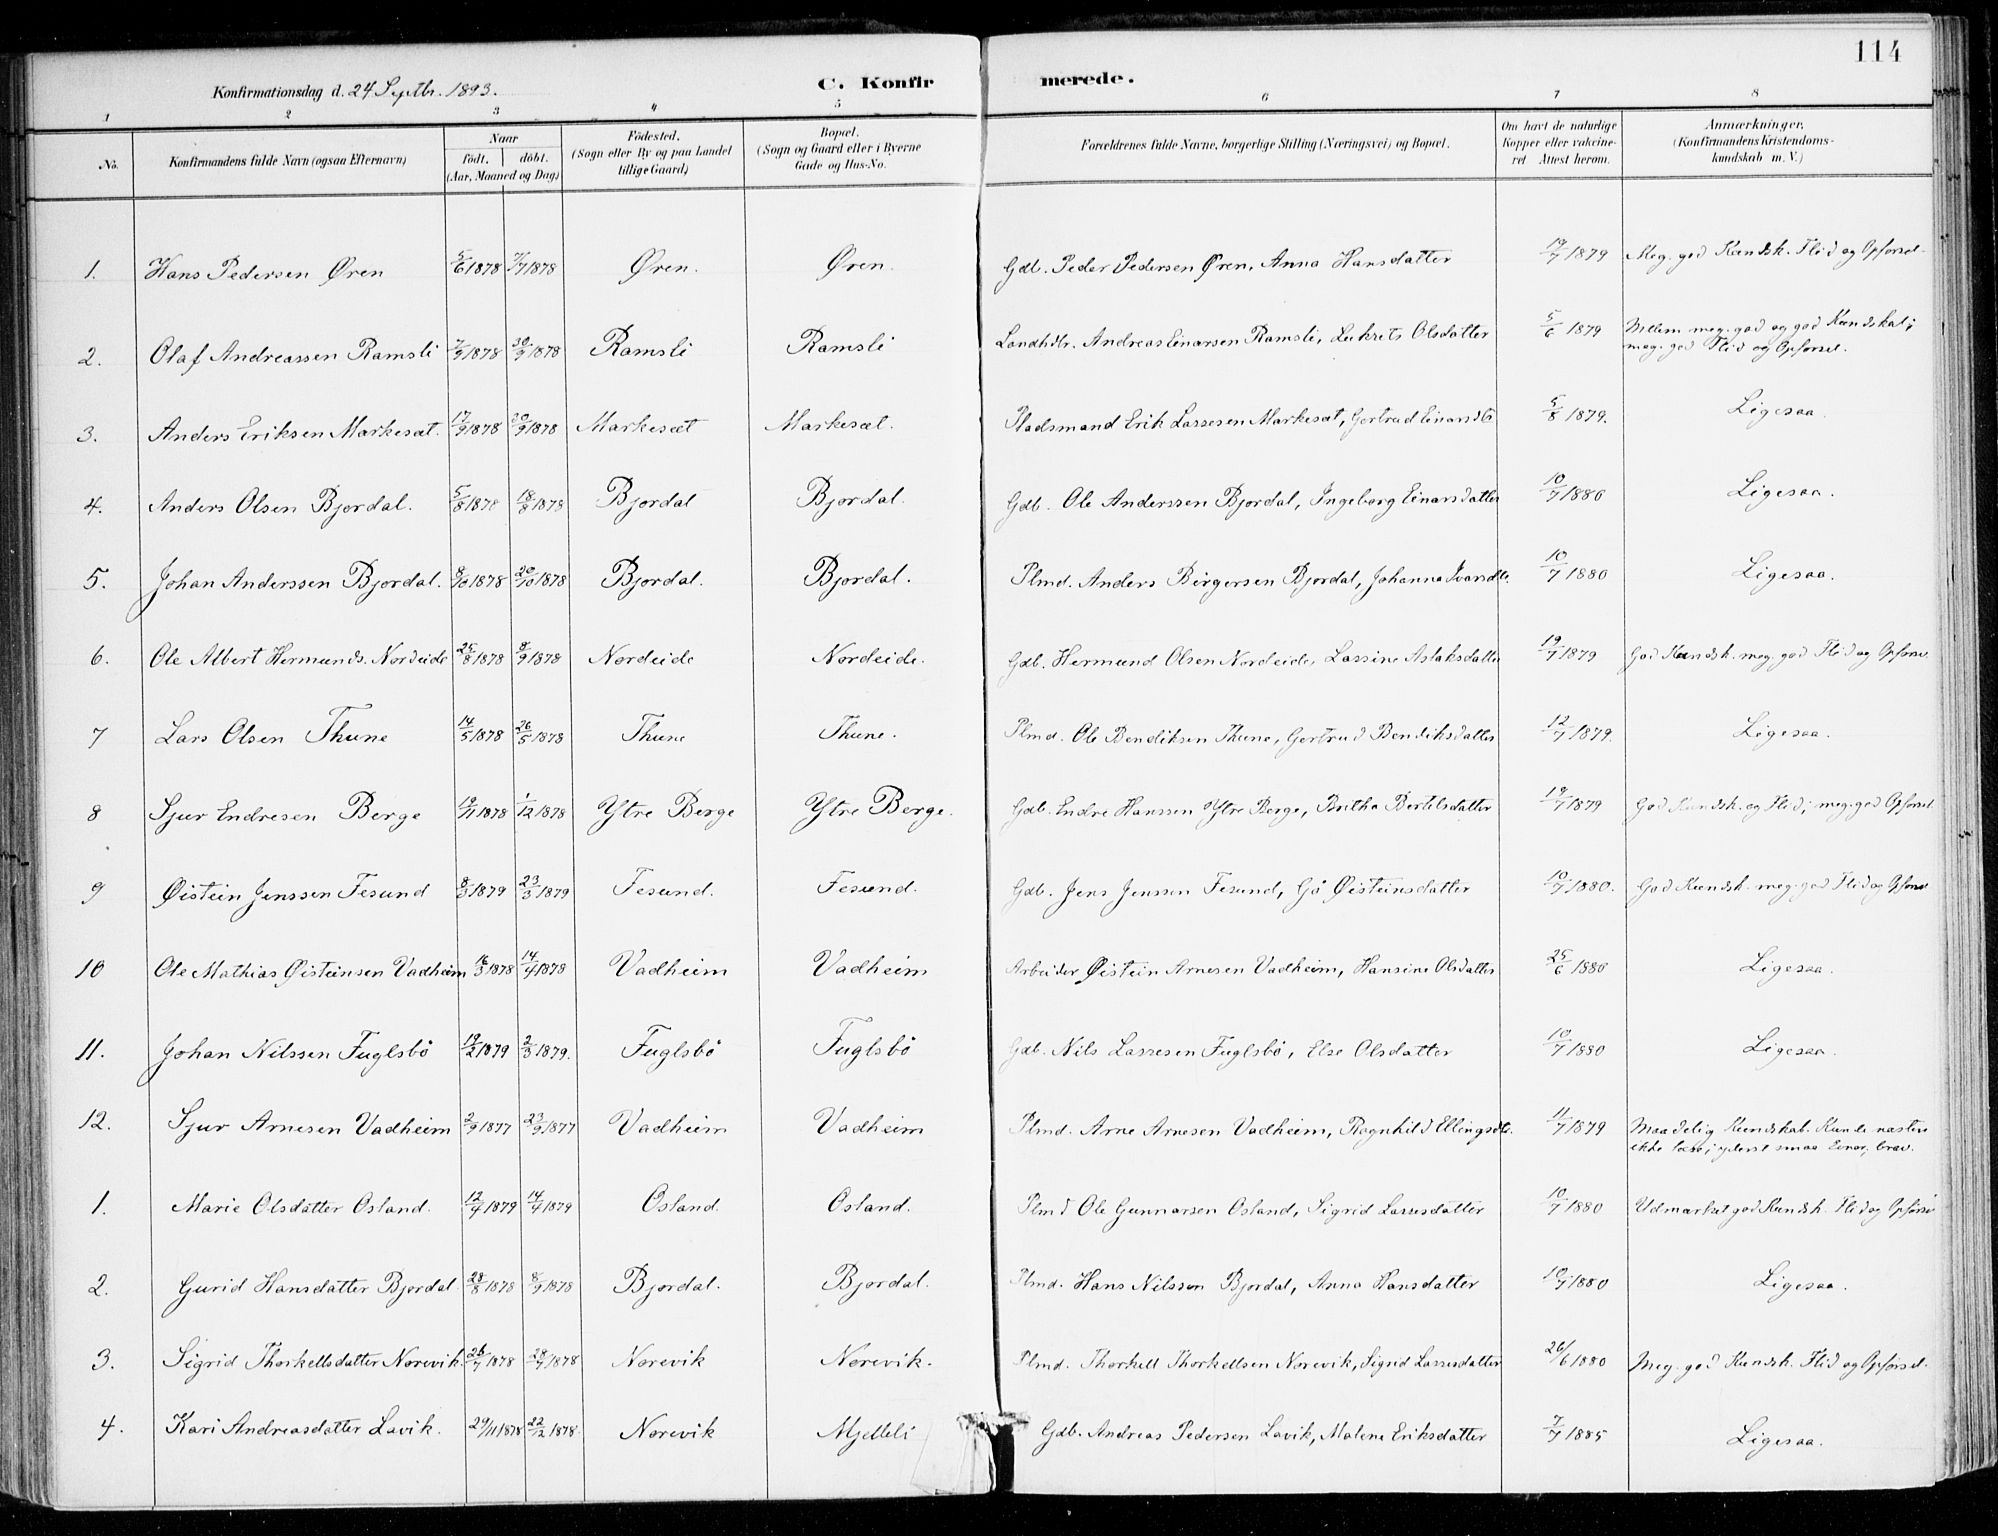 114
Konfirmationsdag d. 24 Septbr. 1893.
C. Konfirmerede.
1 2 3 4 5 6 7 8
No.
Konfirmandens fulde Navn (ogsaa Efternavn)
Naar
födt. döbt.
(Aar, Maaned og Dag)
Födested.
(Sogn eller By og paa Landet
tillige Gaard)
Bopæl.
(Sogn og Gaard eller i Byerne
Gade og Hus-No.
Forældrenes fulde Navne, borgerlige Stilling (Næringsvei) og Bopæl.
Om havt de naturlige
Kopper eller vakcineret
Attest herom.
Anmærkninger.
(Konfirmandens Kristendomskundskab
m. V.)
1. Hans Pedersen Øren 5/6 1878 7/7 1878 Øren. Øren. Gdb. Peder Pedersen Øren, Anna Hansdatter 19/7 1879 Meg. god Kundsk. Flid og Opførsel.
2. Olaf Andreassen Ramsli 7/9 1878 30/9 1878 Ramsli Ramsli Landhdlr. Andreas Einarsen Ramsli, Lukrets Olsdatter 5/6 1879 Mellem meg. god og god Kundskab;
meg. god Flid og Opførsel.
3. Anders Eriksen Markesæt. 17/9 1878 20/9 1878 Markesæt Markesæt. Pladsmand Erik Lassesen Markesæt, Gertrud Einarsdtr 5/8 1879. Ligesaa.
4. Anders Olsen Bjordal. 5/8 1878 18/8 1878 Bjordal Bjordal. Gdb. Ole Anderssen Bjordal, Ingeborg Einarsdatter 10/7 1880 Ligesaa.
5. Johan Anderssen Bjordal. 8/10 1878 20/10 1878 Bjordal. Bjordal. Plmd. Anders Börgersen Bjordal, Johanna Ivarsdtr. 10/7 1880 Ligesaa.
6. Ole Albert Hermunds. Nordeide 25/8 1878 8/9 1878 Nordeide Nordeide. Gdb. Hermund Olsen Nordeide, Lassine Aslaksdatter 19/7 1879 God Kundsk. meg. god Flid og Opførs.
7 Lars Olsen Thune 14/5 1878 26/5 1878 Thune Thune. Plmd. Ole Bendiksen Thune, Gertrud Bendiksdatter 12/7 1879. Ligesaa.
8 Sjur Endresen Berge 19/11 1878 1/12 1878 Ytre Berge Ytre Berge. Gdb. Endre Hanssen Ytre Berge, Britha Bertelsdatter 19/7 1879 God Kundsk. og Flid; meg. god Opførsel
9 Øistein Jenssen Tesund 8/3 1879 23/3 1879 Tesund. Tesund. Gdb. Jens Jenssen Tesund, Gö Øisteinsdatter 10/7 1880. God Kundsk. meg. god Flid og Opførsel
10 Ole Mathias Øisteinsen Vadheim 16/3 1878 14/4 1878 Vadheim Vadheim Arbeider Øistein Arnesen Vadheim, Hansine Olsdatter 25/6 1880 Ligesaa.
11. Johan Nilssen Fuglsbö 19/2 1879 2/3 1879. Fuglsbö Fuglsbö Gdb. Nils Lassesen Fuglsbö, Else Olsdatter 10/7 1880 Ligesaa.
12. Sjur Arnesen Vadheim 2/9 1877 23/9 1877 Vadheim Vadheim Plmd. Arne Arnesen Vadheim, Ragnhild Ellingsdtr. 11/7 1879 Maadelig Kundskab. Kunde næsten
ikke læse; yderst smaa Evner; brav.
1. Marie Olsdatter Osland. 12/4 1879 14/4 1879 Osland. Osland. Plmd Ole Gunnarsen Osland, Sigrid Lassesdatter 10/7 1880 Udmærket god Kundsk. Flid og Opførsel
2. Gurid Hansdatter Bjordal 28/8 1878 8/9 1878 Bjordal. Bjordal. Plmd. Hans Nilsson Bjordal, Anna Hansdatter 10/7 1880 Ligesaa.
3. Sigrid Thorkellsdatter Norevik. 26/7 1878 28/7 1878 Norevik Norevik. Plmd. Thorkell Thorkellsen Norevik, Sigrid Lassesdatter 26/6 1880 Meg. god Kundsk. Flid og Opførsel.
4. Kari Andreasdatter Lavik. 29/11 1878 22/12 1878. Norevik Mjelleli Gdb. Andreas Pedersen Lavik, Malene Eriksdatter 7/7 1885 Ligesaa.